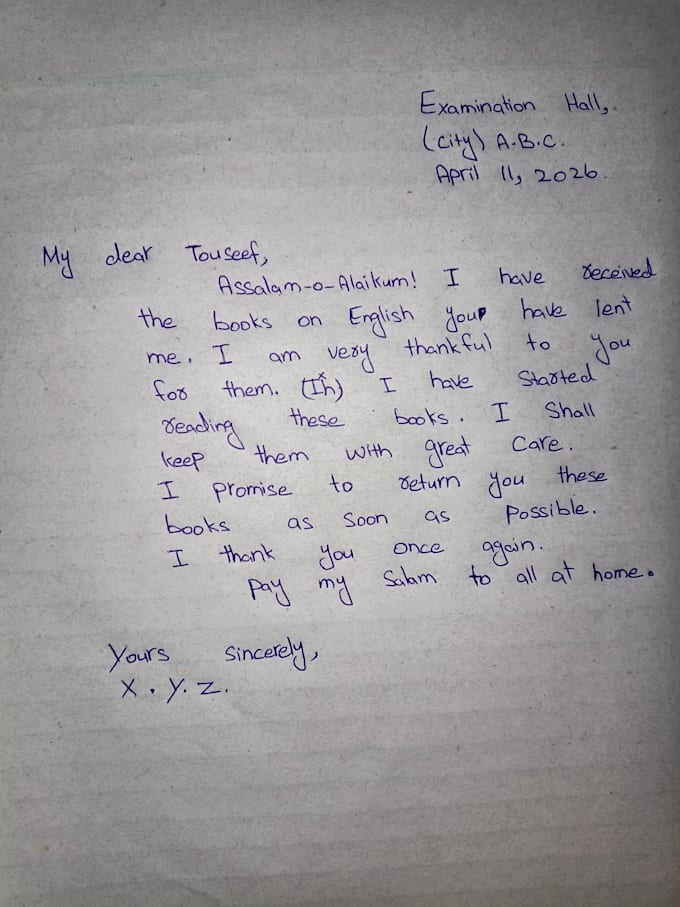 Examination Hall,.
(city) A.B.C.
April 11, 2026.
My dear Touseef,
Assalam-o-Alaikum! I have received
the books on English your have lent
me. I am very thankful to you
for them. (Ih) I have Started
reading these books. I Shall
keep them with great care.
I promise to return you these
books as soon as possible.
I thank you once again.
Pay my Salam to all at home.
Yours sincerely,
X.Y.Z.